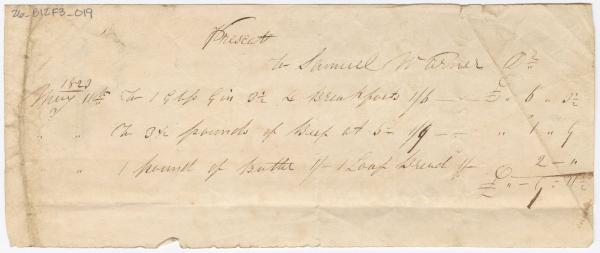 26_B12F3_019
Prescott
To Samuel Warner Dr
1823
May 11th To 1 Glass Gin 3½ 2 Breakfasts 1/6 — — £ " 6 " 3½
" " To 3½ pounds of Beef at 5½ 1/9 — — " 1 " 9
" 1 pound of Butter 1/- 1 Loaf Bread 1/- 2 — "
£ " — 9 " 11½